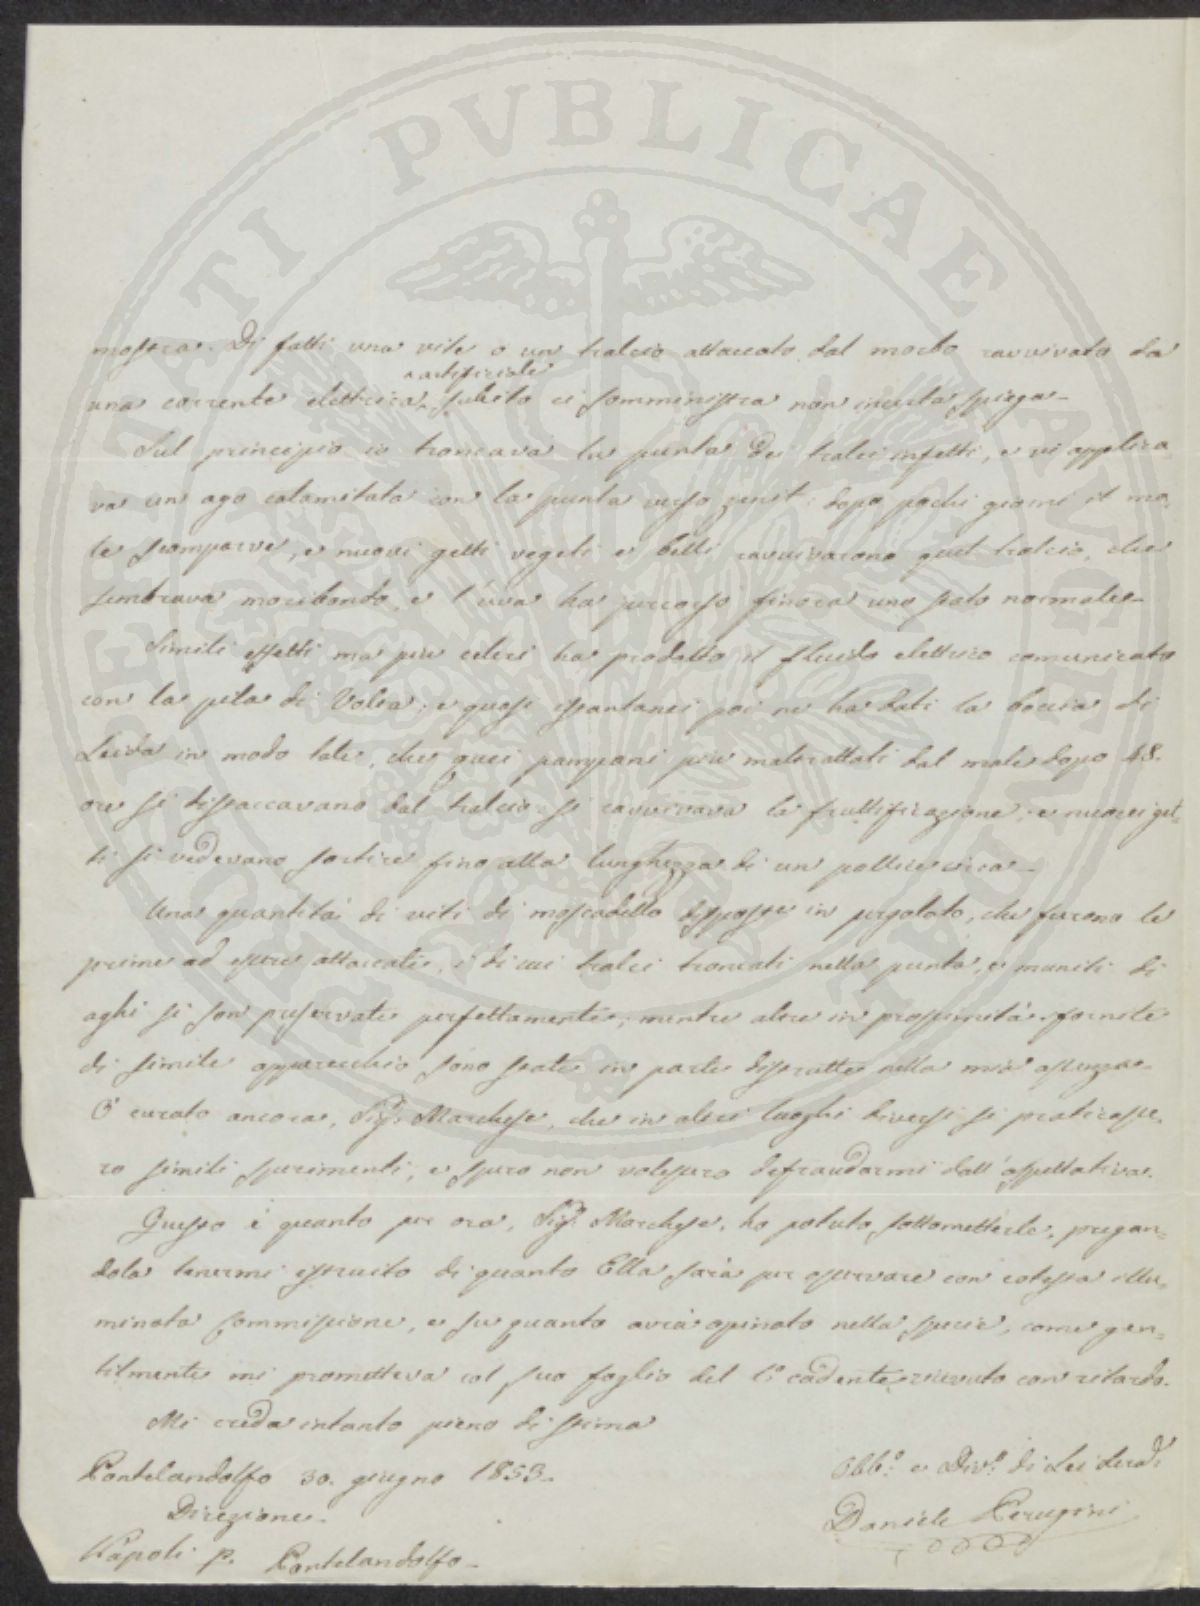 PROSPERITATI PVBLICAE AVGENDAE
mostra. Di fatti una vite o un tralcio attaccato dal morbo ravvivato da
artificiale
una corrente elettrica, subito ci somministra non incerta spiega_
Sul principio io troncava la punta de' tralci infetti, e vi applica
va un ago calamitato con la punta verso zenit: dopo pochi giorni il ma,
le scomparve, e nuovi getti vegeti e belli ravvivarono quel tralcio, che
sembrava moribondo, e l'uva ha percorso finora uno stato normale_
Simili effetti ma più celeri ha prodotto il fluido elettrico comunicato
con la pila di Volta; e quasi istantanei poi ne ha dati la boccia di
Leida in modo tale, che quei pampani più maltrattati dal male dopo 48.
ore si distaccavano dal tralcio, si ravvivava la fruttificazione, e nuovi get,
ti si vedevano sortire fino alla lunghezza di un pollice circa_
Una quantità di viti di moscadello disposte in pergolato, che furono le
prime ad essere attaccate, e di cui tralci troncati nella punta, e muniti di
aghi si son preservate perfettamente; mentre altre in prossimità fornite
di simile apparecchio sono state in parte distrutte nella mia assenza_
Ò curato ancora, Sigr. Marchese, che in altri luoghi diversi si praticasse,
ro simili sperimenti, e spero non volessero defraudarmi dall'aspettativa.
Questo è quanto per ora, Sigr. Marchese, ho potuto sottometterle, pregan=
dola tenermi istruito di quanto Ella sarà per osservare con cotesta illu=
minata Commissione, e su quanto avrà opinato nella specie, come gen=
tilmente mi prometteva col suo foglio del 1° cadente ricevuto con ritardo.
Mi creda intanto pieno di stima
Pontelandolfo 30. giugno 1853_
Obb.° e Div.° di Lei
Direzione_
Daniele Perugini
Napoli p. Pontelandolfo_